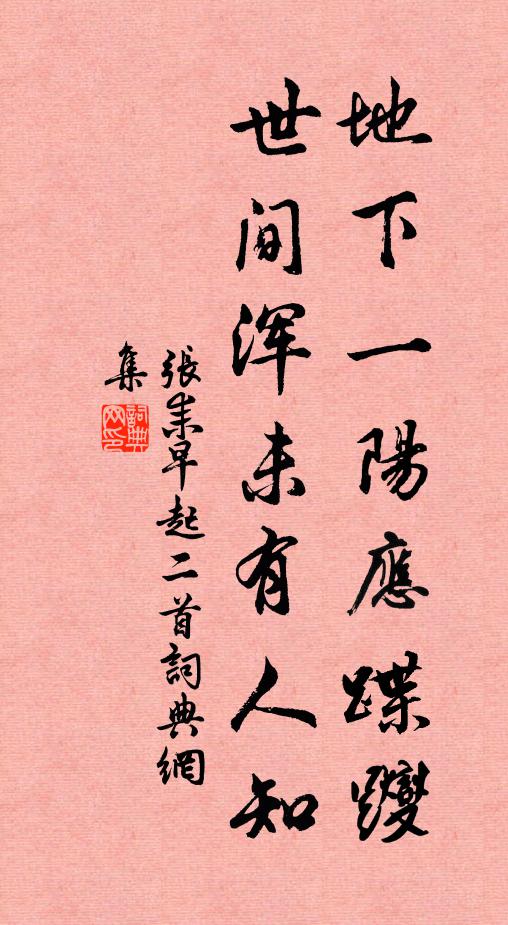 地下一陽應蹀躞
世間渾未有人知
張耒早起二首詞典網
集
詞典网印